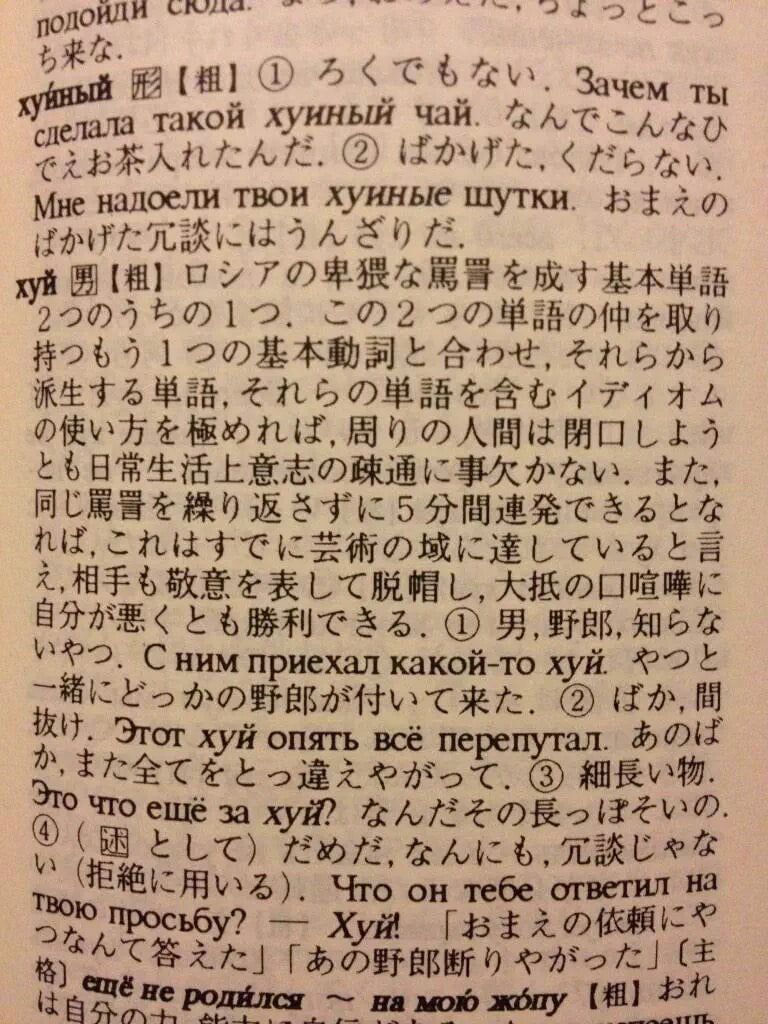 подойди сюда.
ち来な.
хуйный 形【粗】① ろくでもない. Зачем ты
сделала такой хуиный чай. なんでこんなひ
でえお茶入れたんだ. ② ばかげた, くだらない.
Мне надоели твои хуиные шутки. おまえの
ばかげた冗談にはうんざりだ.
хуй 男【粗】ロシアの卑猥な罵詈を成す基本単語
2つのうちの1つ. この2つの単語の仲を取り
持つもう1つの基本動詞と合わせ, それらから
派生する単語, それらの単語を含むイディオム
の使い方を極めれば, 周りの人間は閉口しよう
とも日常生活上意志の疎通に事欠かない. また,
同じ罵詈を繰り返さずに5分間連発できるとな
れば, これはすでに芸術の域に達していると言
え, 相手も敬意を表して脱帽し, 大抵の口喧嘩に
自分が悪くとも勝利できる. ① 男, 野郎, 知らな
いやつ. С ним приехал какой-то хуй. やつと
一緒にどっかの野郎が付いて来た. ② ばか, 間
抜け. Этот хуй опять всё перепутал. あのば
か, また全てをとっ違えやがって. ③ 細長い物.
Это что ещё за хуй? なんだその長っぽそいの.
④ (述 として) だめだ, なんにも, 冗談じゃな
い (拒絶に用いる). Что он тебе ответил на
твою просьбу? — Хуй! 「おまえの依頼にや
つなんて答えた」「あの野郎断りやがった」〔主
格〕 ещё не роди́лся ～ на мою́ жо́пу【粗】おれ
は自分の力,